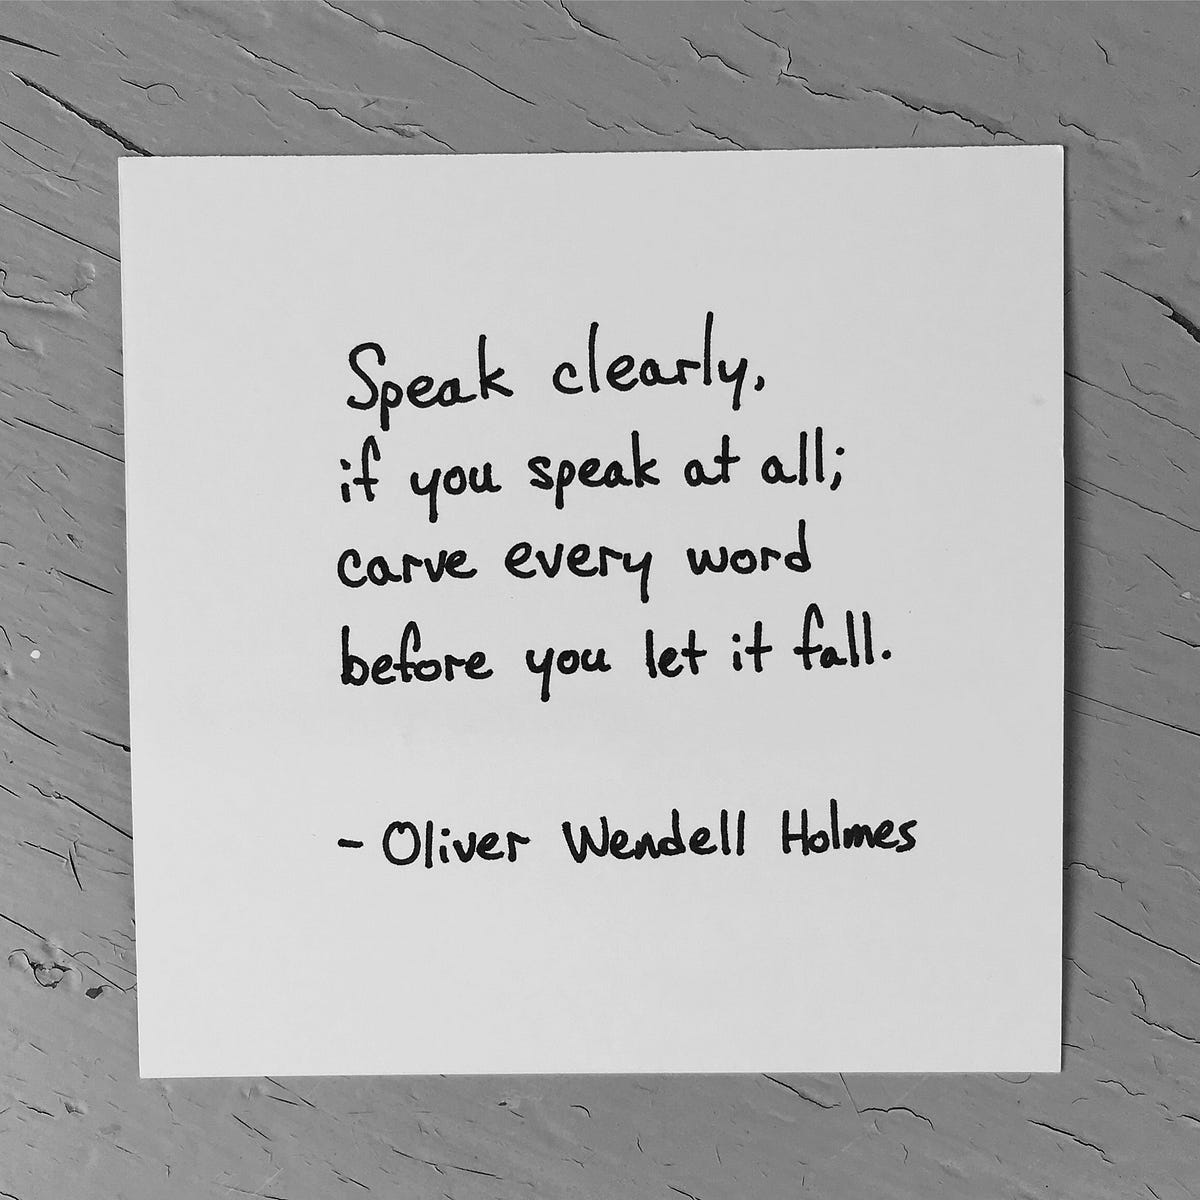 Speak clearly,
if you speak at all;
carve every word
before you let it fall.
- Oliver Wendell Holmes